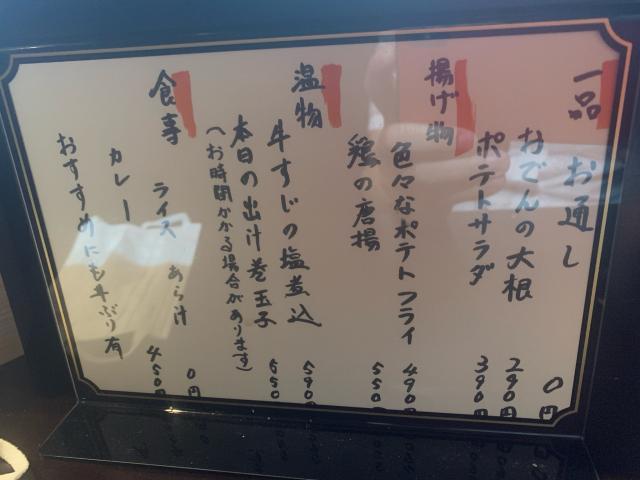 一品
お通し 0円
おでんの大根 290円
ポテトサラダ 390円
揚げ物
色々なポテトフライ 490円
鶏の唐揚 550円
温物
牛すじの塩煮込 590円
本日の出汁巻玉子 650
(お時間がかかる場合があります)
食事
ライス あら汁 0円
カレー 450円
おすすめにも丼ぶり有